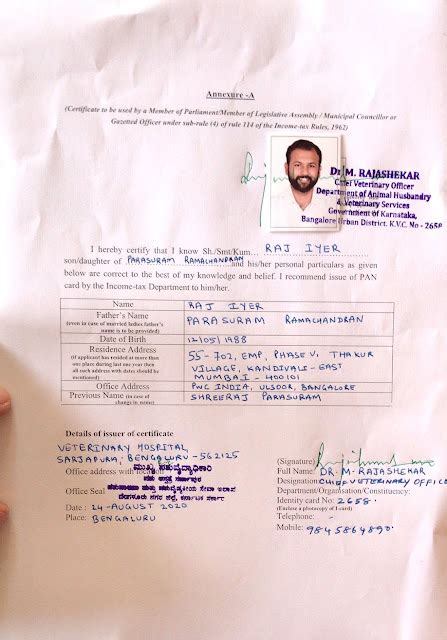 Annexure -A
(Certificate to be used by a Member of Parliament/Member of Legislative Assembly / Municipal Councillor or
Gazetted Officer under sub-rule (4) of rule 114 of the Income-tax Rules, 1962)
Dr. M. RAJASHEKAR
Chief Veterinary Officer
Department of Animal Husbandry
& Veterinary Services
Government of Karnataka,
Bangalore Urban District. K.V.C. No - 2658
I hereby certify that I know Sh./Smt/Kum... RAJ IYER
son/daughter of PARASURAM RAMACHANDRAN and his/her personal particulars as given
below are correct to the best of my knowledge and belief. I recommend issue of PAN
card by the Income-tax Department to him/her.
Name RAJ IYER
Father's Name PARASURAM RAMACHANDRAN
(even in case of married ladies father's
name is to be provided)
Date of Birth 12/05/1988
Residence Address 55-702, EMP, PHASE V, THAKUR
(if applicant has resided at more than
one place during last one year then VILLAGE, KANDIVALI-EAST
all such address with dates should be
mentioned) MUMBAI - 400101
Office Address PWC INDIA, ULSOOR, BANGALORE
Previous Name (in case of SHREERAJ PARASURAM
change in name)
Details of issuer of certificate
VETERINARY HOSPITAL
SARJAPURA, BENGALURU-562125
Office address with location
ಮುಖ್ಯ ಪಶುವೈದ್ಯಾಧಿಕಾರಿ
Office Seal
Date : 24-AUGUST 2020
Place: BENGALURU
(Signature)
Full Name: DR. M. RAJASHEKAR
Designation: CHIEF VETERINARY OFFICE
Department/Organisation/Constituency:
Identity card No: 2658.
(Enclose a photocopy of I-card)
Telephone: -
Mobile: 9845864890.